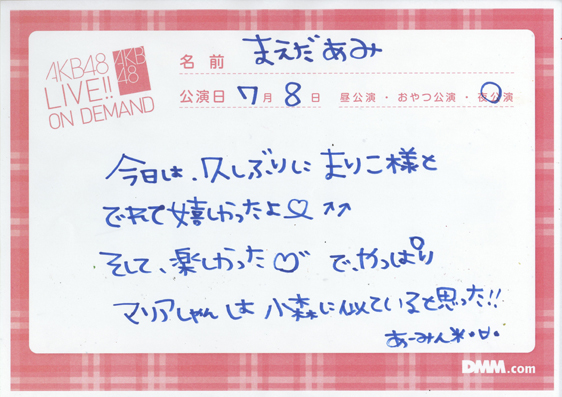 AKB48
LIVE!!
ON DEMAND
AKB
48
名前 まえだあみ
公演日 7月8日 昼公演・おやつ公演・夜公演
今日は、久しぶりにまりこ様と
でれて嬉しかったよ♡↑↑
そして、楽しかった♡で、やっぱり
マリアしゃんは小森に似ていると思った!!
あーみん*・ω・
DMM.com